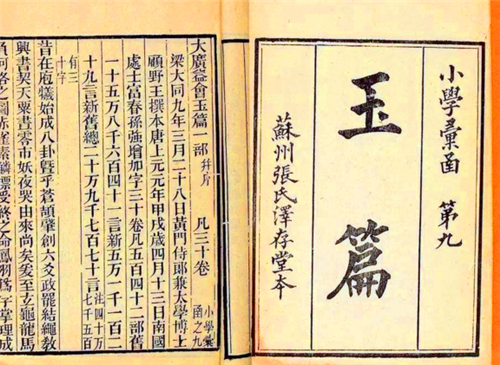 小學彙函 第九
玉篇
蘇州張氏澤存堂本
大廣益會玉篇一部 凡三十卷 小學彙函之九
梁大同九年三月二十八日黃門侍郎兼太學博士
顧野王撰本唐上元元年甲戌歲四月十三日南國
處士富春孫強增加字三十卷凡五百四十二部舊
一十五萬八千六百四十一言新五萬一千一百二
十九言新舊總二十萬九千七百七十言 注四十萬七千五百
有三十字
昔在庖犧始成八卦暨乎蒼頡肇創六爻政罷結繩教
興書契天粟晝零市妖夜哭由來尚矣爰至玄龜龍馬
負河洛之圖赤雀素鱗標受終之命鳳羽為字掌理成